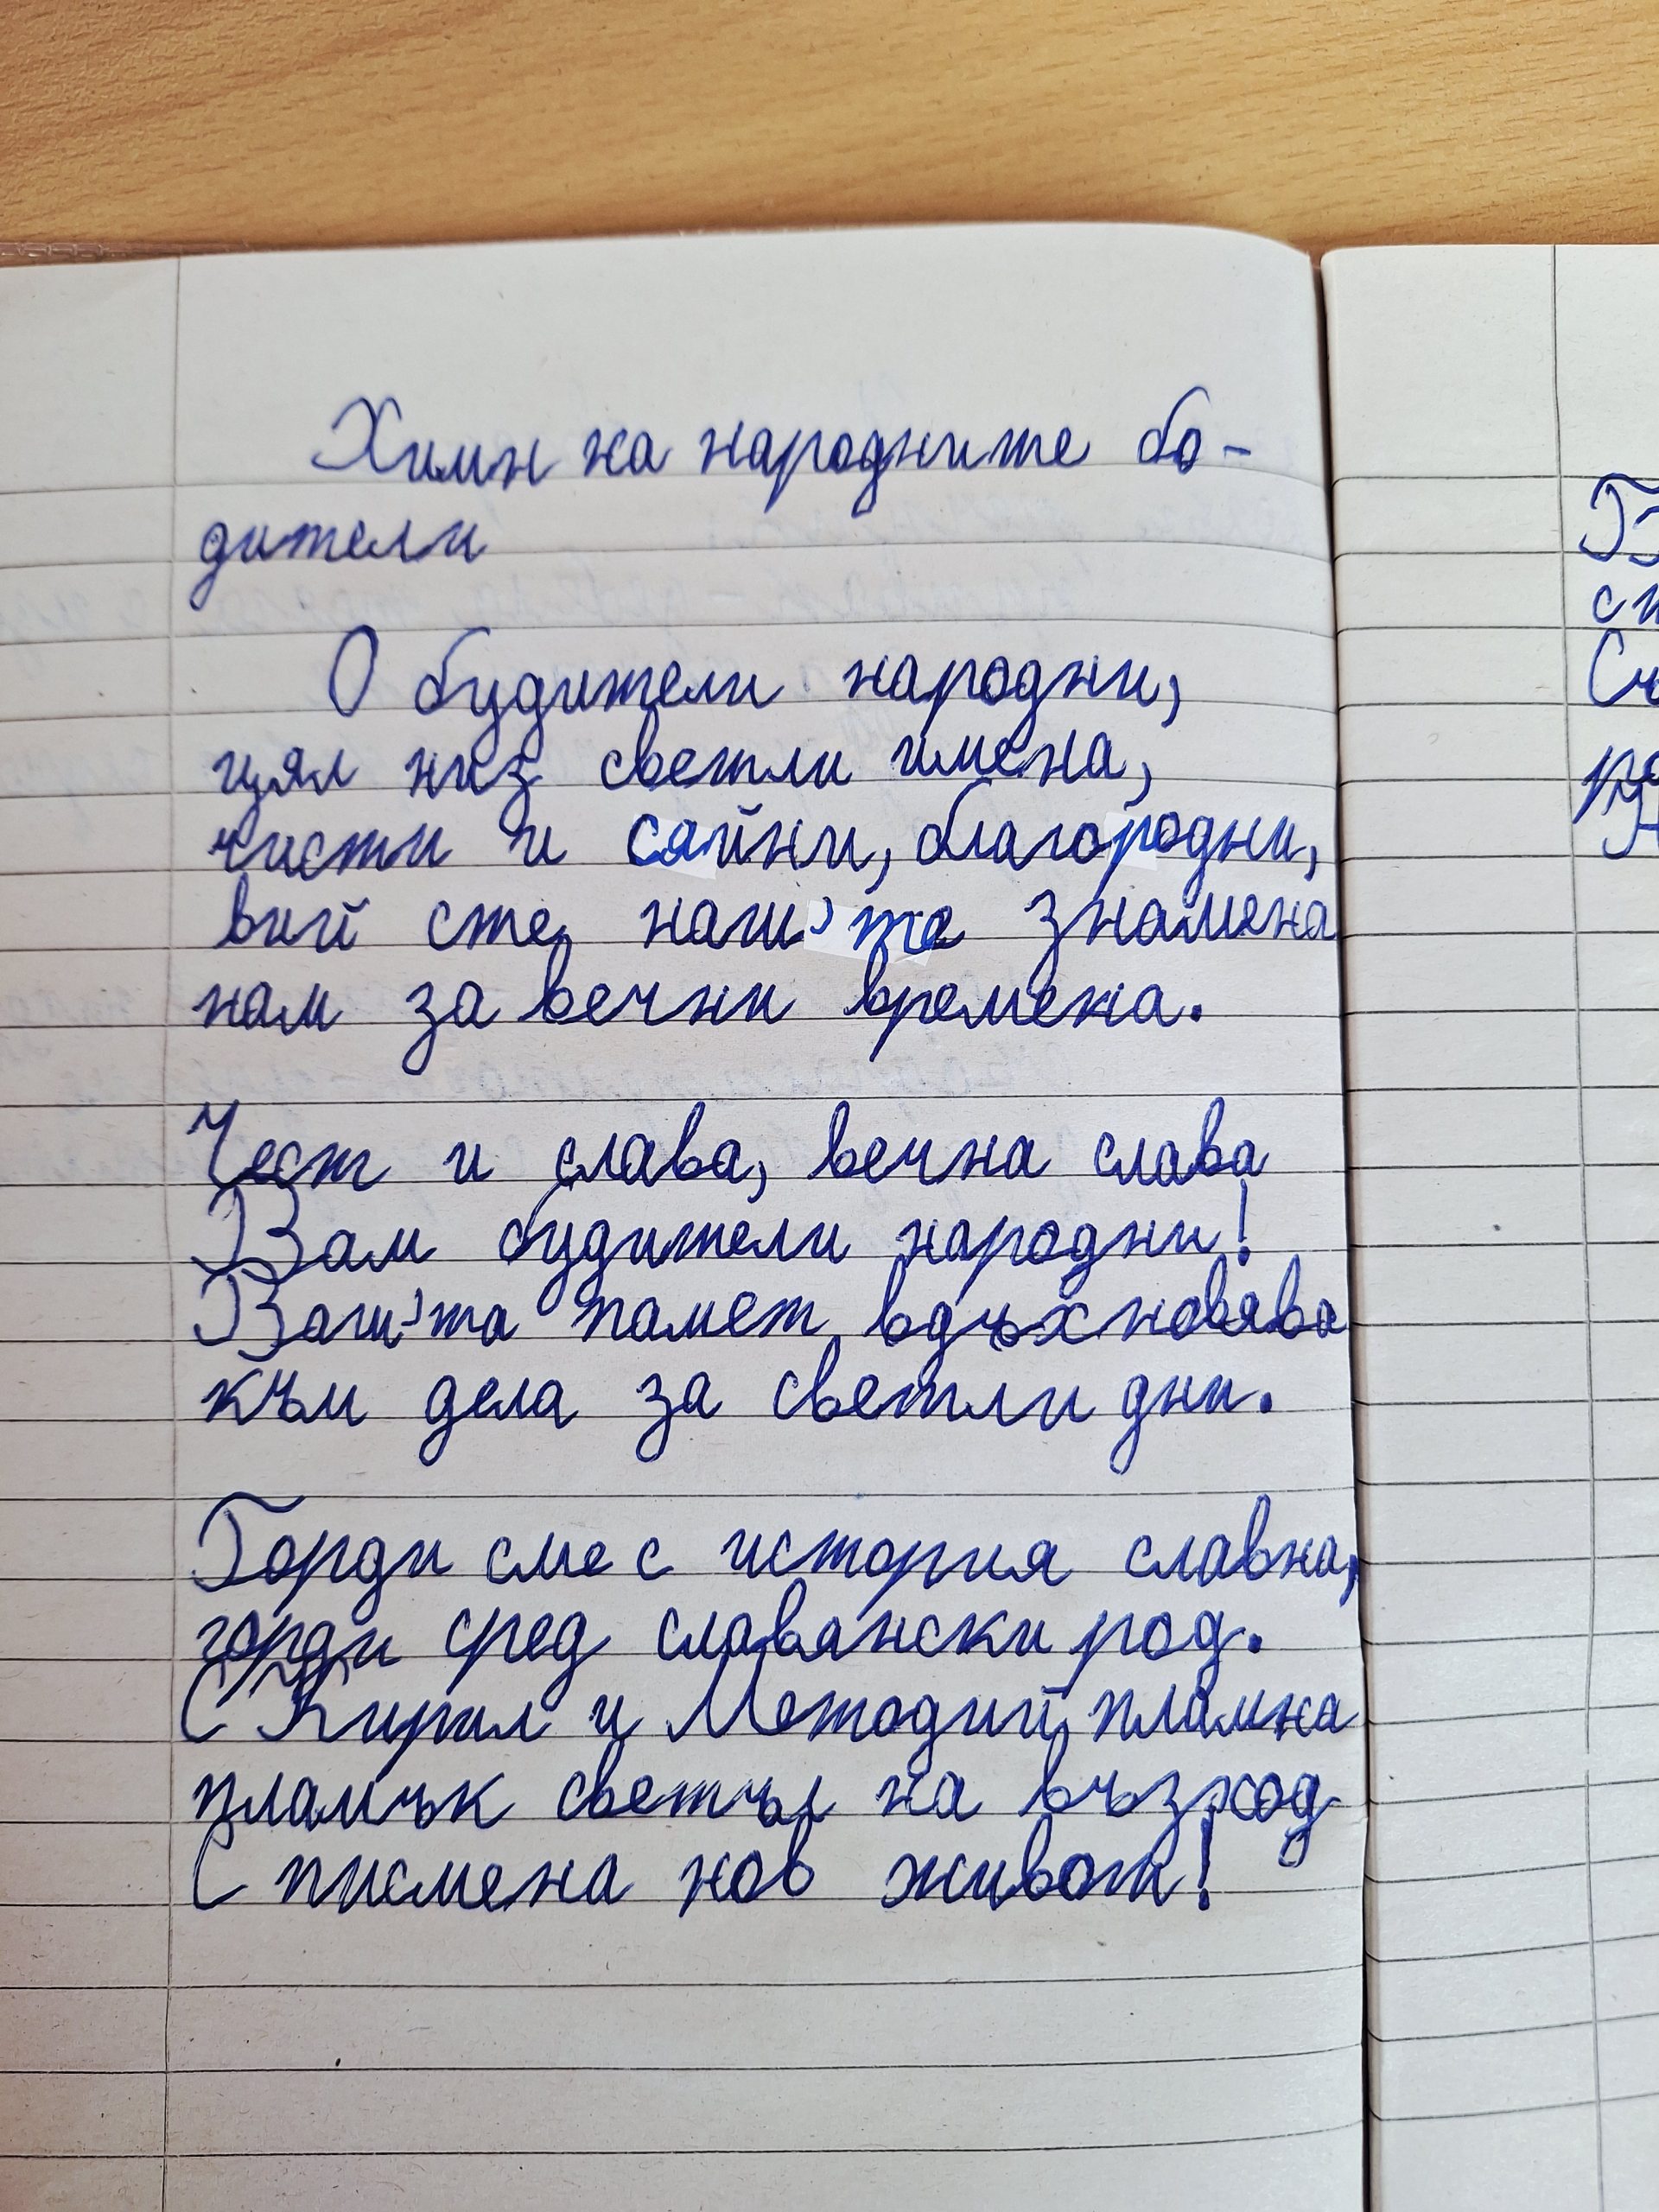 Химн на народните бо-
дители
О будители народни,
цял низ светли имена,
чисти и сяйни, благородни,
вий сте наш'те знамена
нам за вечни времена.
Чест и слава, вечна слава
Вам будители народни!
Ваш'та памет вдъхновява
към дела за светли дни.
Горди сме с история славна,
горди сред славянски род.
С Кирил и Методий пламна
пламък светъл на възход
С писмена нов живот!